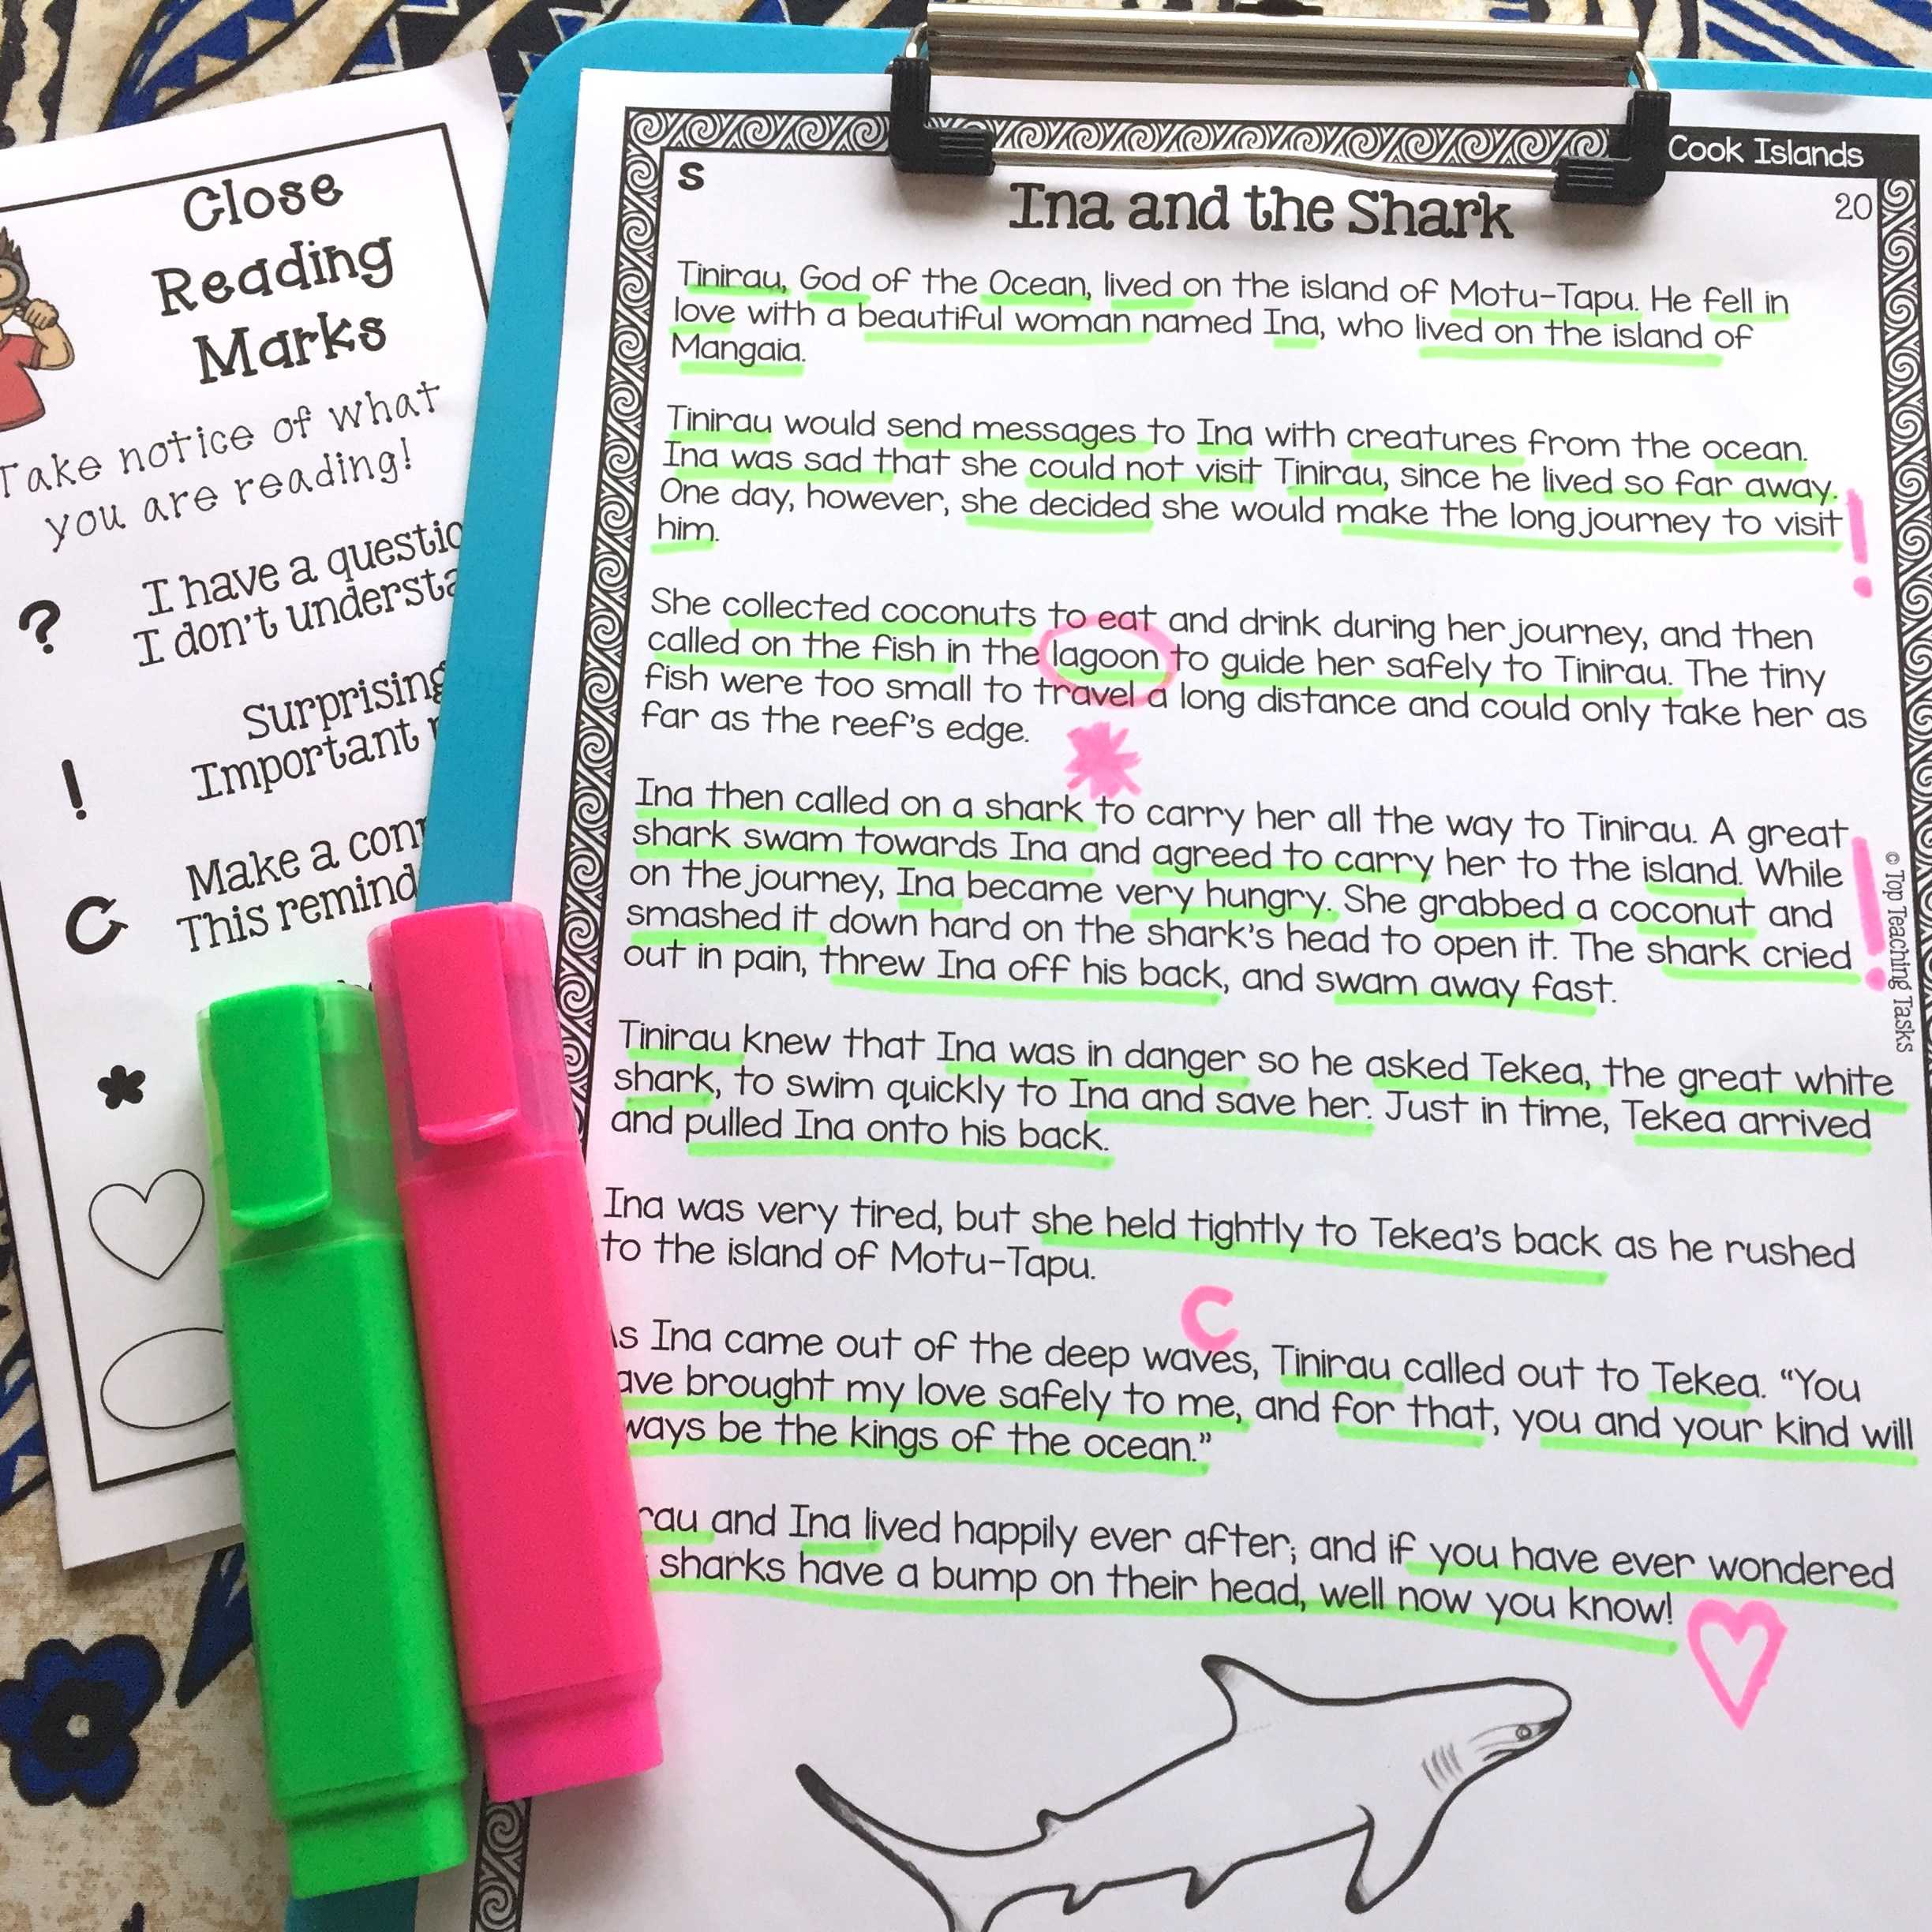 Close
Reading
Marks
Take notice of what
you are reading!
? I have a
I don't
! Surprising
Important
C Make a
This
Cook Islands
S
20
Ina and the Shark
Tinirau, God of the Ocean, lived on the island of Motu-Tapu. He fell in
love with a beautiful woman named Ina, who lived on the island of
Mangaia.
Tinirau would send messages to Ina with creatures from the ocean.
Ina was sad that she could not visit Tinirau, since he lived so far away.
One day, however, she decided she would make the long journey to visit
him.
!
She collected coconuts to eat and drink during her journey, and then
called on the fish in the lagoon to guide her safely to Tinirau. The tiny
fish were too small to travel a long distance and could only take her as
far as the reef's edge.
Ina then called on a shark to carry her all the way to Tinirau. A great
shark swam towards Ina and agreed to carry her to the island. While
on the journey, Ina became very hungry. She grabbed a coconut and
smashed it down hard on the shark's head to open it. The shark cried
out in pain, threw Ina off his back, and swam away fast.
!
Tinirau knew that Ina was in danger so he asked Tekea, the great white
shark, to swim quickly to Ina and save her. Just in time, Tekea arrived
and pulled Ina onto his back.
Ina was very tired, but she held tightly to Tekea's back as he rushed
to the island of Motu-Tapu.
C
Ina came out of the deep waves, Tinirau called out to Tekea. “You
brought my love safely to me, and for that, you and your kind will
be the kings of the ocean.”
and Ina lived happily ever after; and if you have ever wondered
sharks have a bump on their head, well now you know!
© Top Teaching Tasks